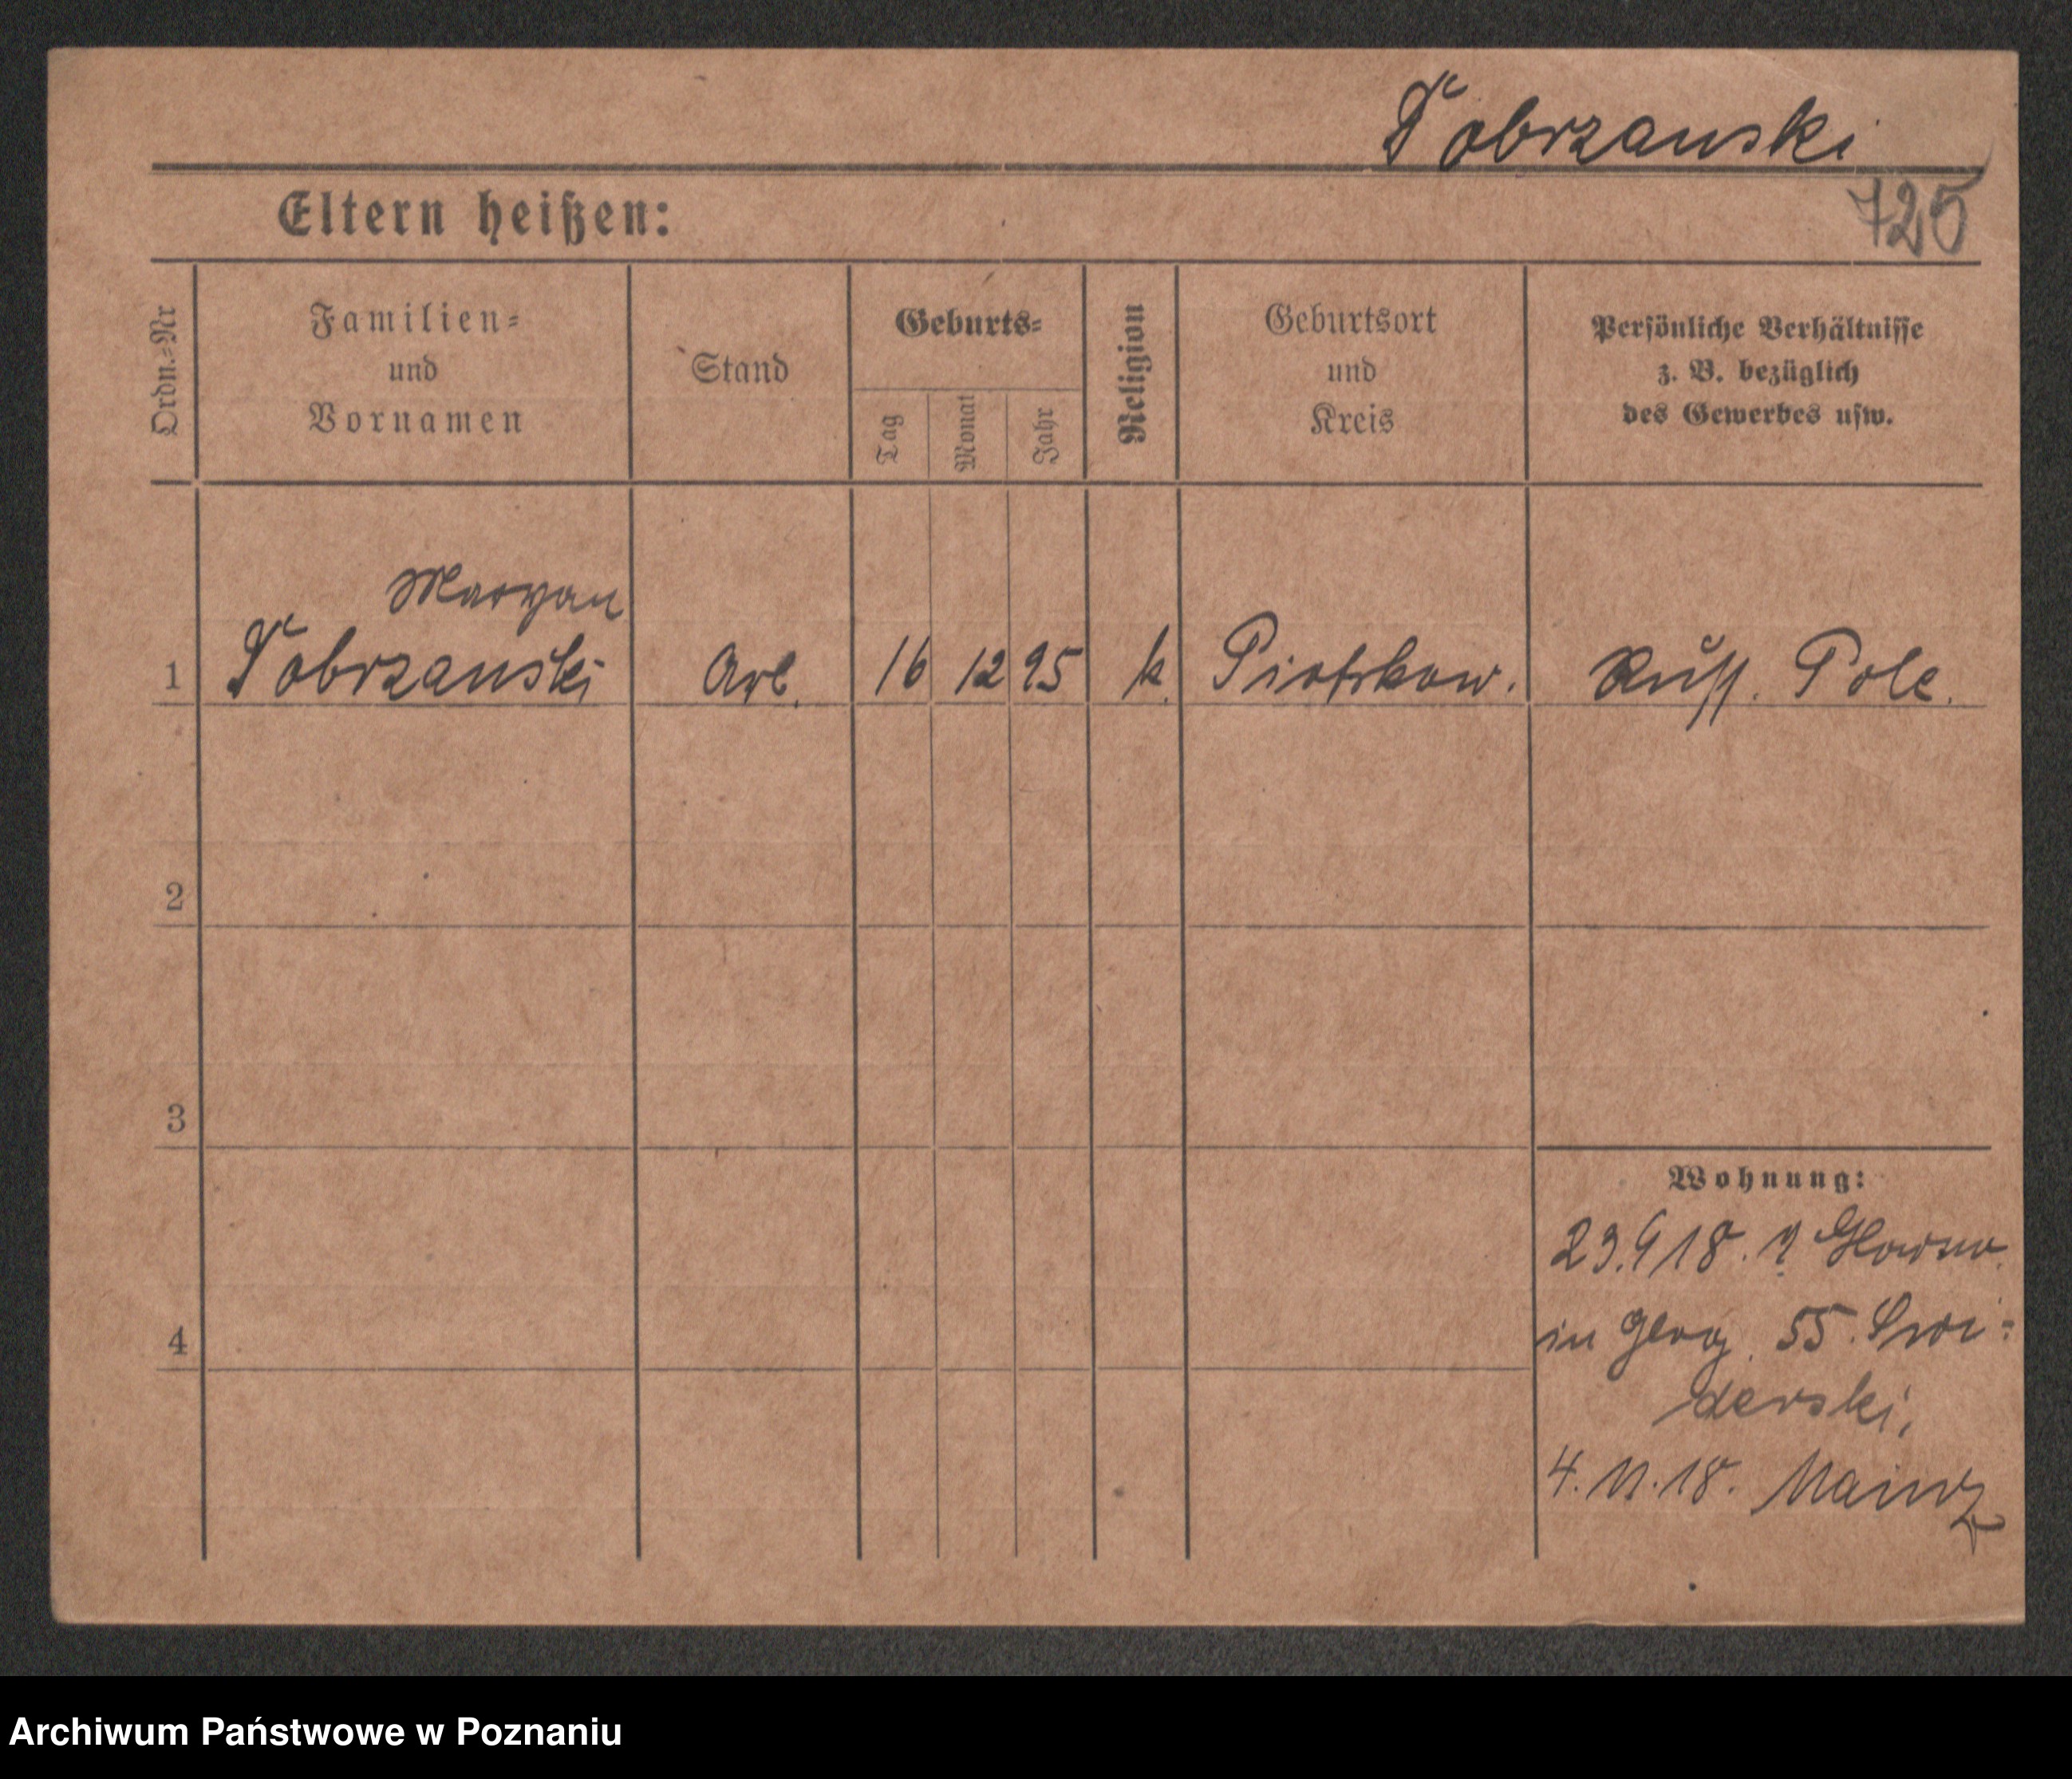 Dobrzanski
725
Eltern heißen:
Ordn.=Nr
Familien=
und
Vornamen
Stand
Geburts=
Tag
Monat
Jahr
Religion
Geburtsort
und
Kreis
Persönliche Verhältnisse
z. B. bezüglich
des Gewerbes usw.
Maryan
1 Dobrzanski Arb. 16 12 95 k. Piotrkow. Russ. Pole.
2
3
Wohnung:
23.9 18. Glowno.
4
in Glog. 55. Swi=
derski,
4. 11. 18. Mainz
Archiwum Państwowe w Poznaniu